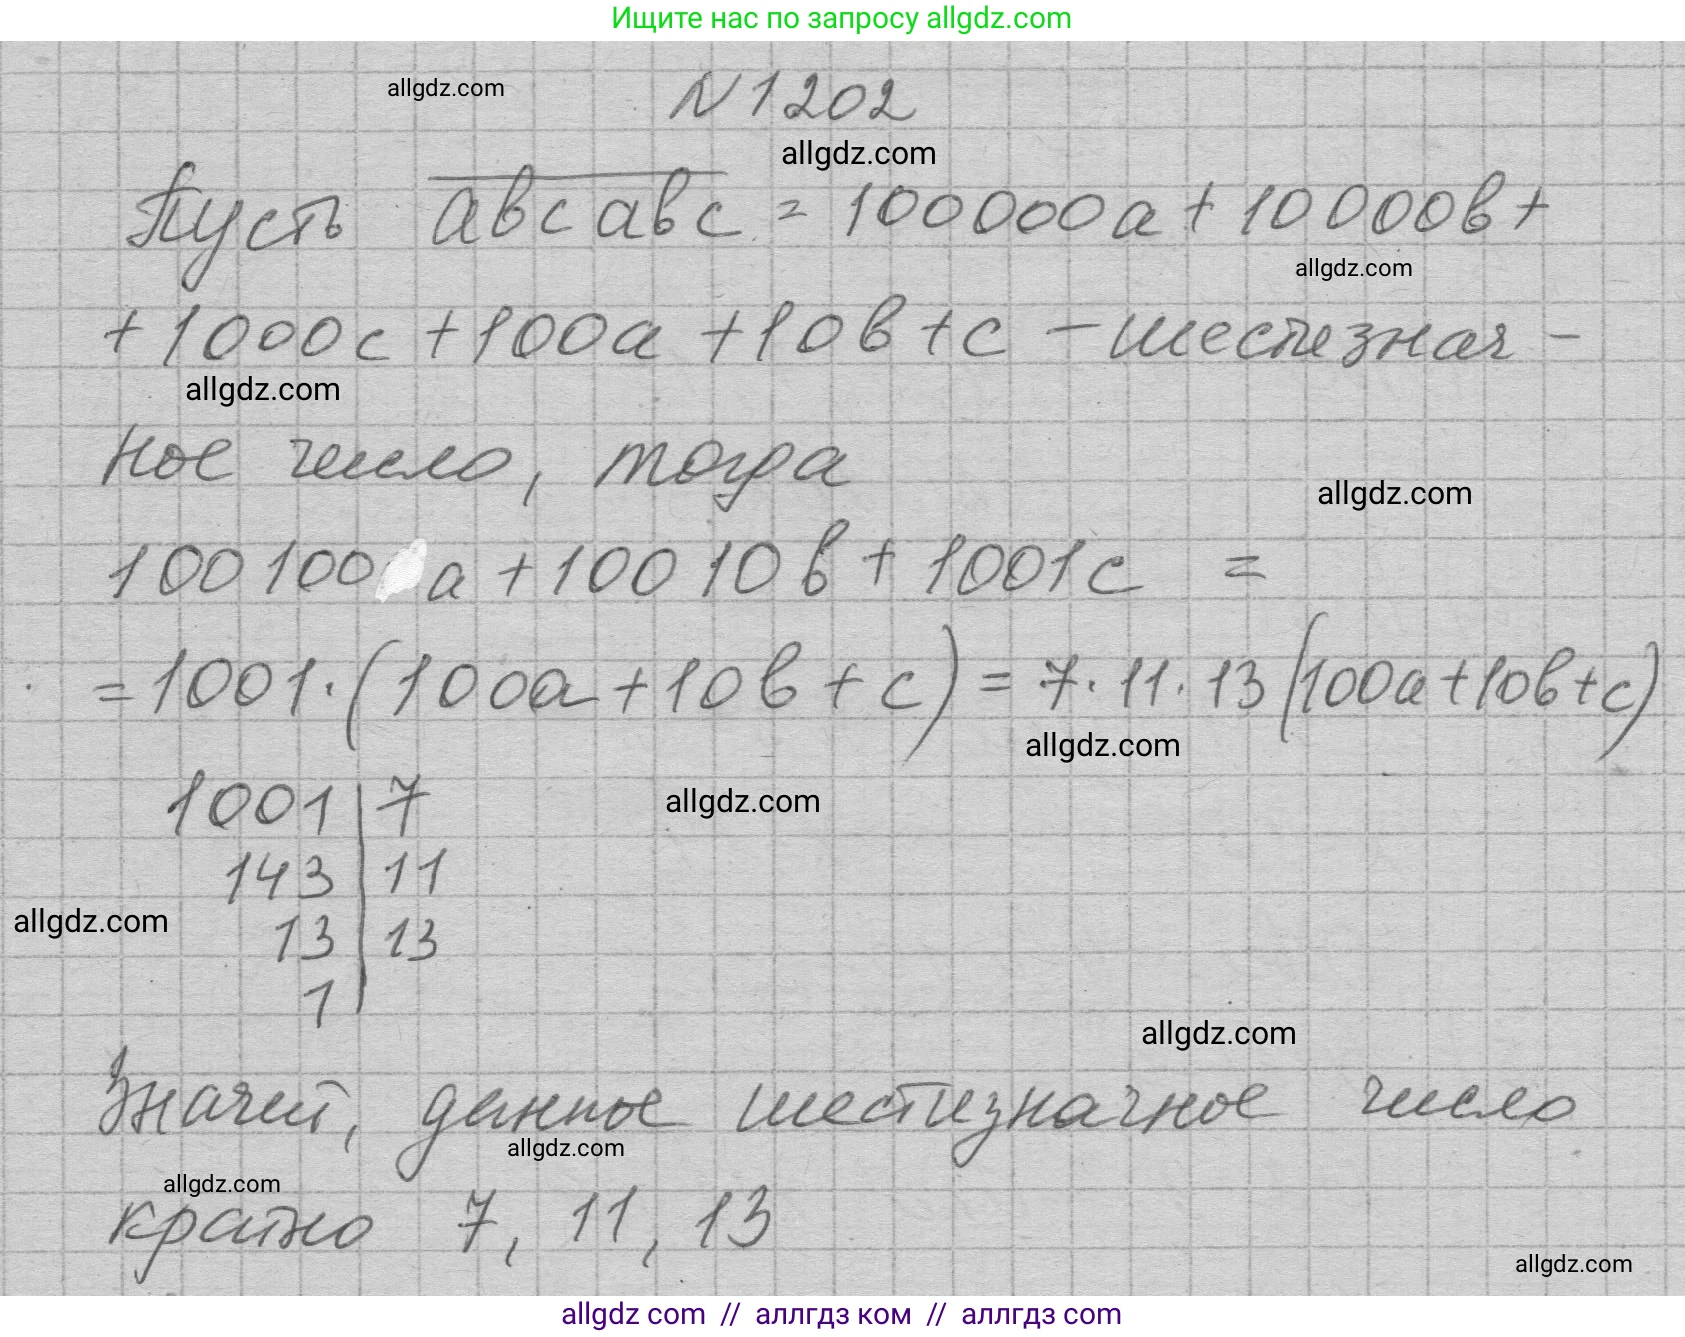 Ищите нас по запросу allgdz.com
allgdz.com
N 1202
allgdz.com
Пусть abcabc = 100000a + 10000b +
allgdz.com
+ 1000c + 100a + 10b + c - шестизнач -
allgdz.com
ное число, тогда
allgdz.com
100100 a + 10010b + 1001c =
= 1001 · (100a + 10b + c) = 7 · 11 · 13 (100a + 10b + c)
allgdz.com
1001 | 7
allgdz.com
143 | 11
13 | 13
allgdz.com
1
allgdz.com
Значит, данное шестизначное число
allgdz.com
allgdz.com
кратно 7, 11, 13
allgdz.com
allgdz com // аллгдз ком // аллгдз com